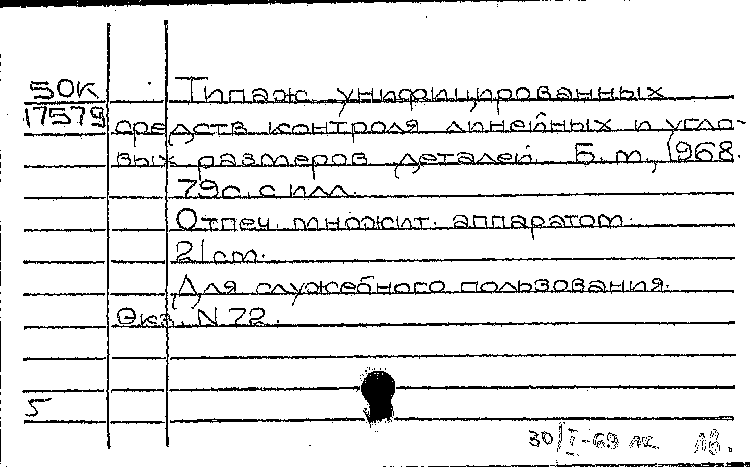 50К Типаж унифицированных
17579 средств контроля линейных и угло-
вых размеров деталей. Б.м., 1968.
79с. с илл.
Отпеч. множит. аппаратом.
21 cm.
Для служебного пользования.
Экз. N 72.
5
30/I-69 18.